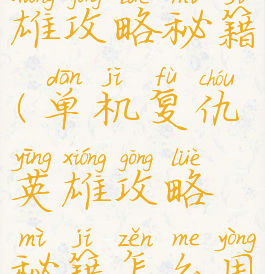 xióng gōng lüè mì jí
雄攻略秘籍
dān jī fù chóu
(单机复仇
yīng xióng gōng lüè
英雄攻略
mì jí zěn me yòng
秘籍怎么用